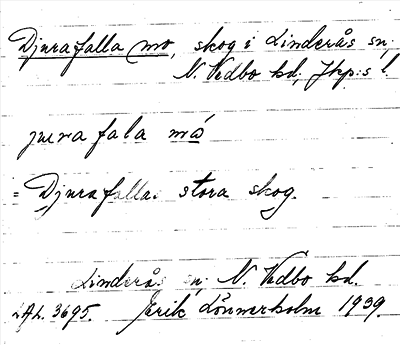 Djurafalla mo, skog i Linderås sn;
N. Vedbo hd; Jkp:s l.
jura fala mo
= Djurafalla stora skog.
Linderås sn; N. Vedbo hd.
LAL. 3695. Erik Lönnerholm 1939.